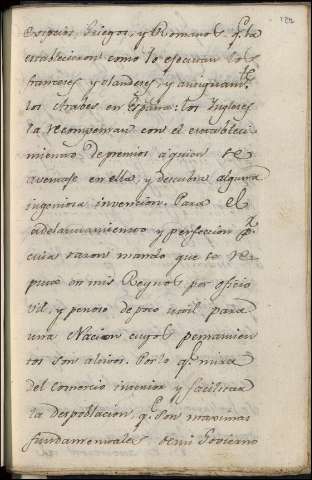 122
Egipcios, Griegos, y Romanos q.e la
establecieron como lo executan los
franceses, y olandeses, y antiguam.te
los Arabes en España: los Ingleses
la recompensan con el estableci-
miento de premios à quien se
aventase en ella, y descubra alguna
ingeniosa invencion. Para el
adelantamiento y perfeccion p.r
cuia razon mando que se re-
pute en mis Reynos por oficio
vil, y penoso de poco util para
una Nacion cuyos pensamien-
tos son altivos. Por lo q.e mira
del comercio interior y facilitar
la despoblacion, q.e son maximas
fundamentales de mi Govierno